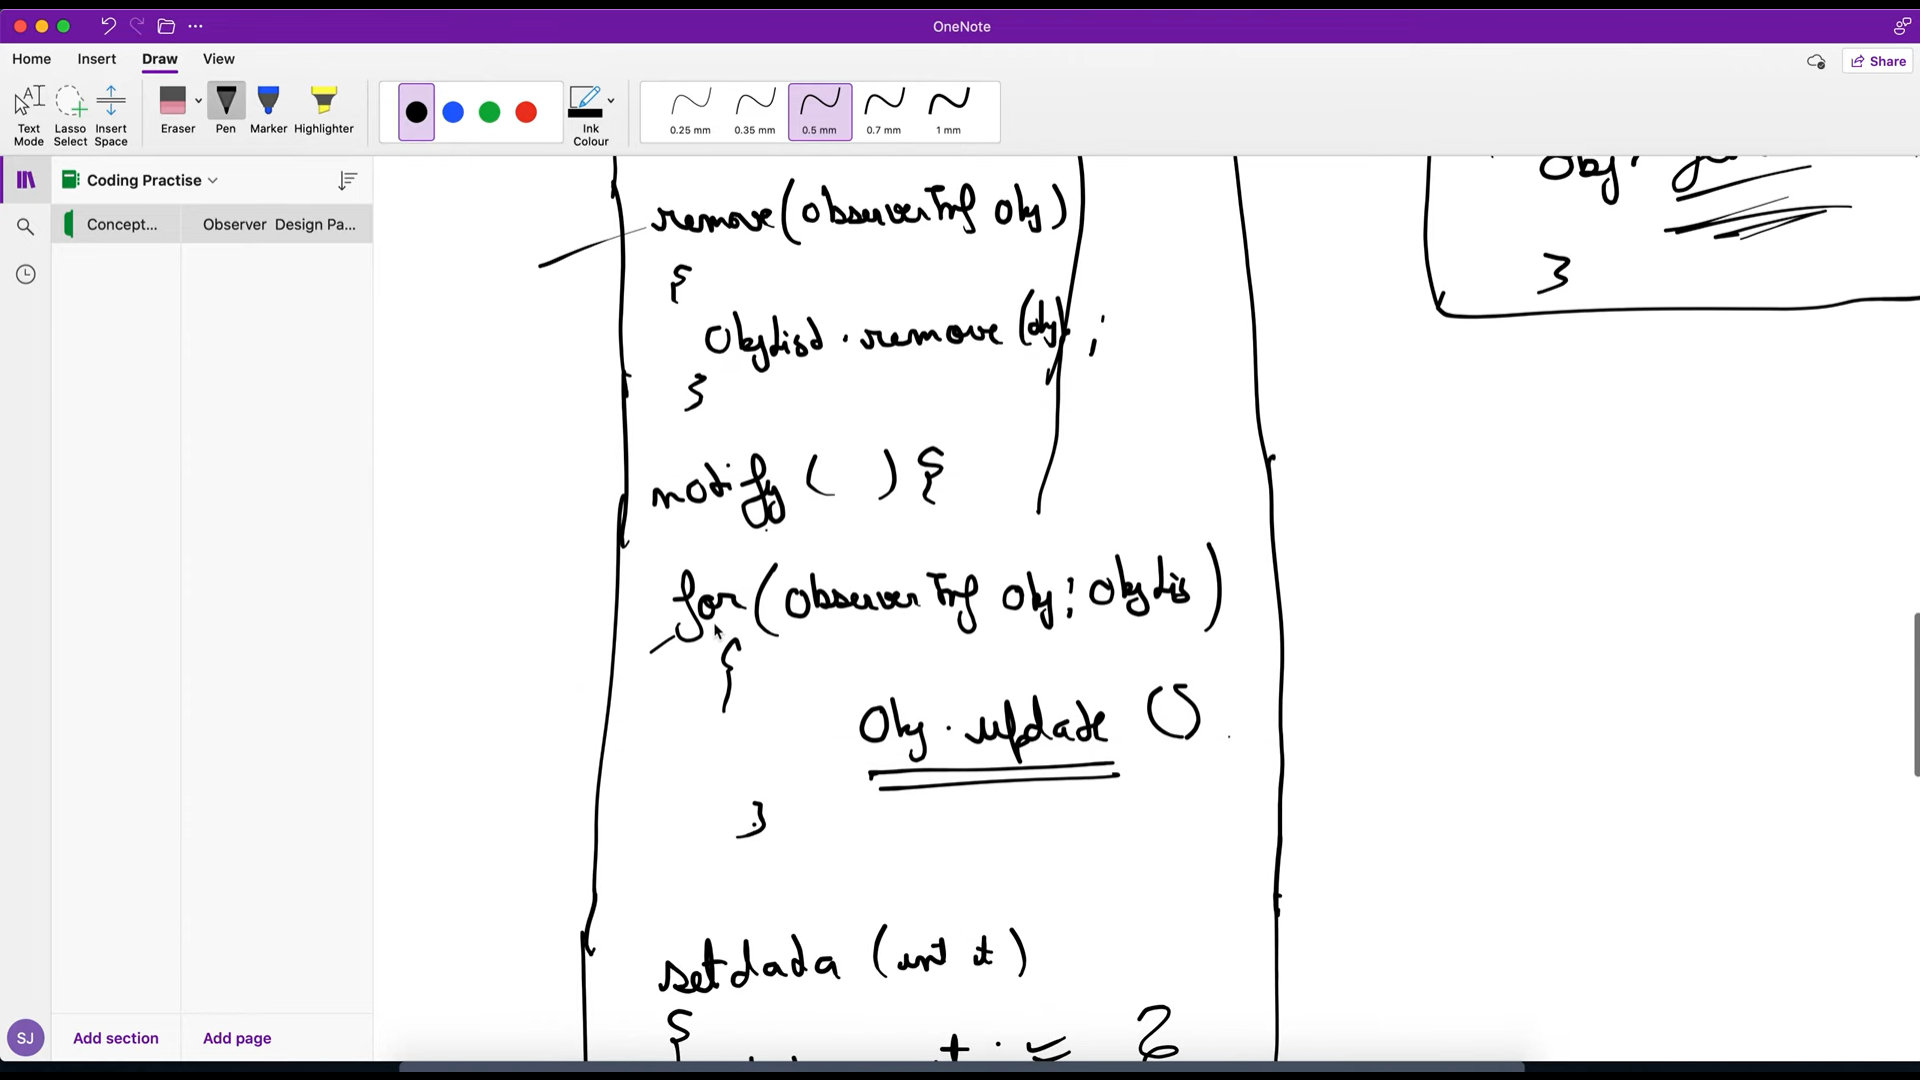 OneNote
Home Insert Draw View
Share
Text Mode
Lasso Select
Insert Space
Eraser
Pen
Marker
Highlighter
Ink Colour
0.25 mm
0.35 mm
0.5 mm
0.7 mm
1 mm
Coding Practise
Concept...
Observer Design Pa...
Obj.
}
remove(ObserverInf Obj)
{
Objlist.remove(obj);
}
notify ( ) {
for(ObserverInf Obj: Objlis)
{
Obj.update ()
}
setdada (int t)
{
SJ
Add section
Add page